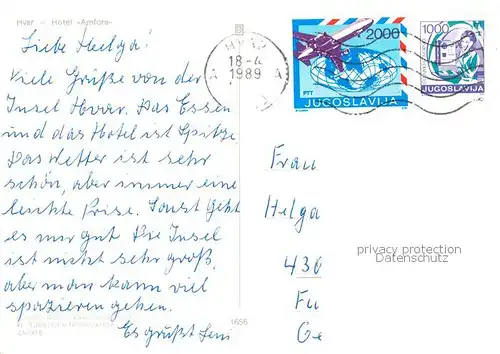 Hvar – Hotel »Amfora«
Liebe Helga!
Viele Grüße von der
Insel Hvar. Das Essen
und das Hotel ist Spitze
Das Wetter ist sehr
schön, aber immer eine
leichte Prise. Sonst geht
es mir gut. Die Insel
ist nicht sehr groß,
aber man kann viel
spazieren gehen.
Es grüßt
1656
HVAR
18-4
1989
A A
2000
PTT
JUGOSLAVIJA
1000
JUGOSLAVIJA
Frau
Helga
430
privacy protection
Datenschutz